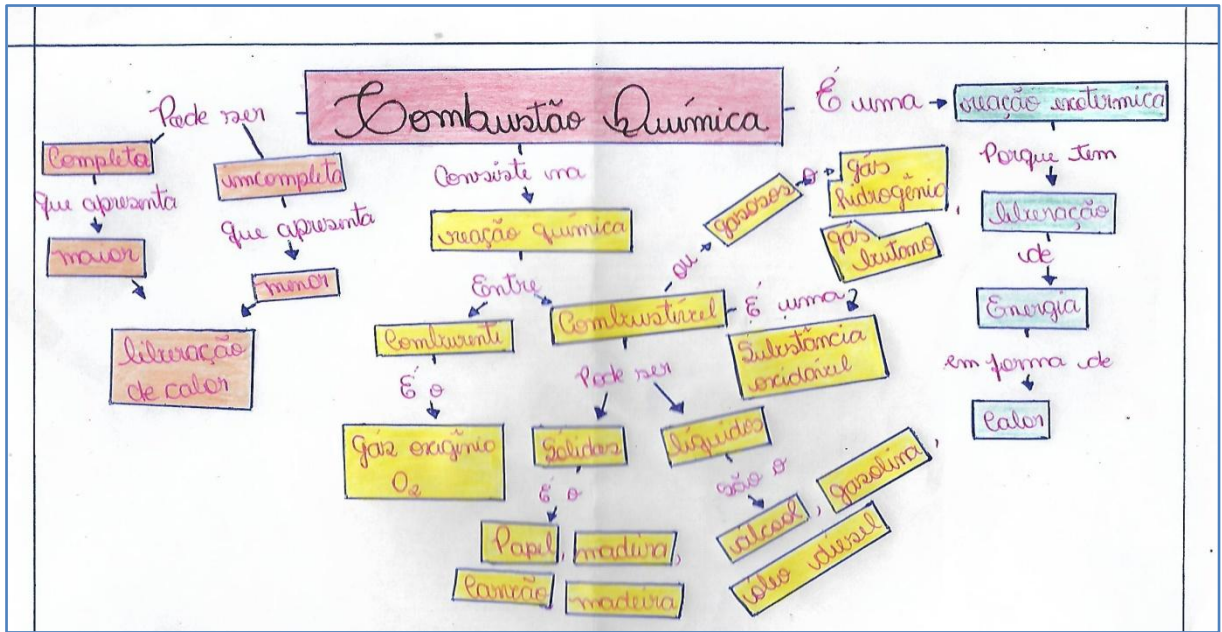 Combustão Química
Pode ser
Completa
que apresenta
maior
incompleta
que apresenta
menor
liberação
de calor
Consiste na
reação química
Entre
Comburente
É o
Gás oxagênio
O₂
Combustível
É uma
Substância
oxidável
ou
gasosos
o
gás
hidrogênio,
gás
butano
Pode ser
Sólidos
É o
Papel, madeira,
Carvão madeira
líquidos
são o
álcool, gasolina,
óleo diesel
É uma
reação exotérmica
Porque tem
liberação
de
Energia
em forma de
Calor